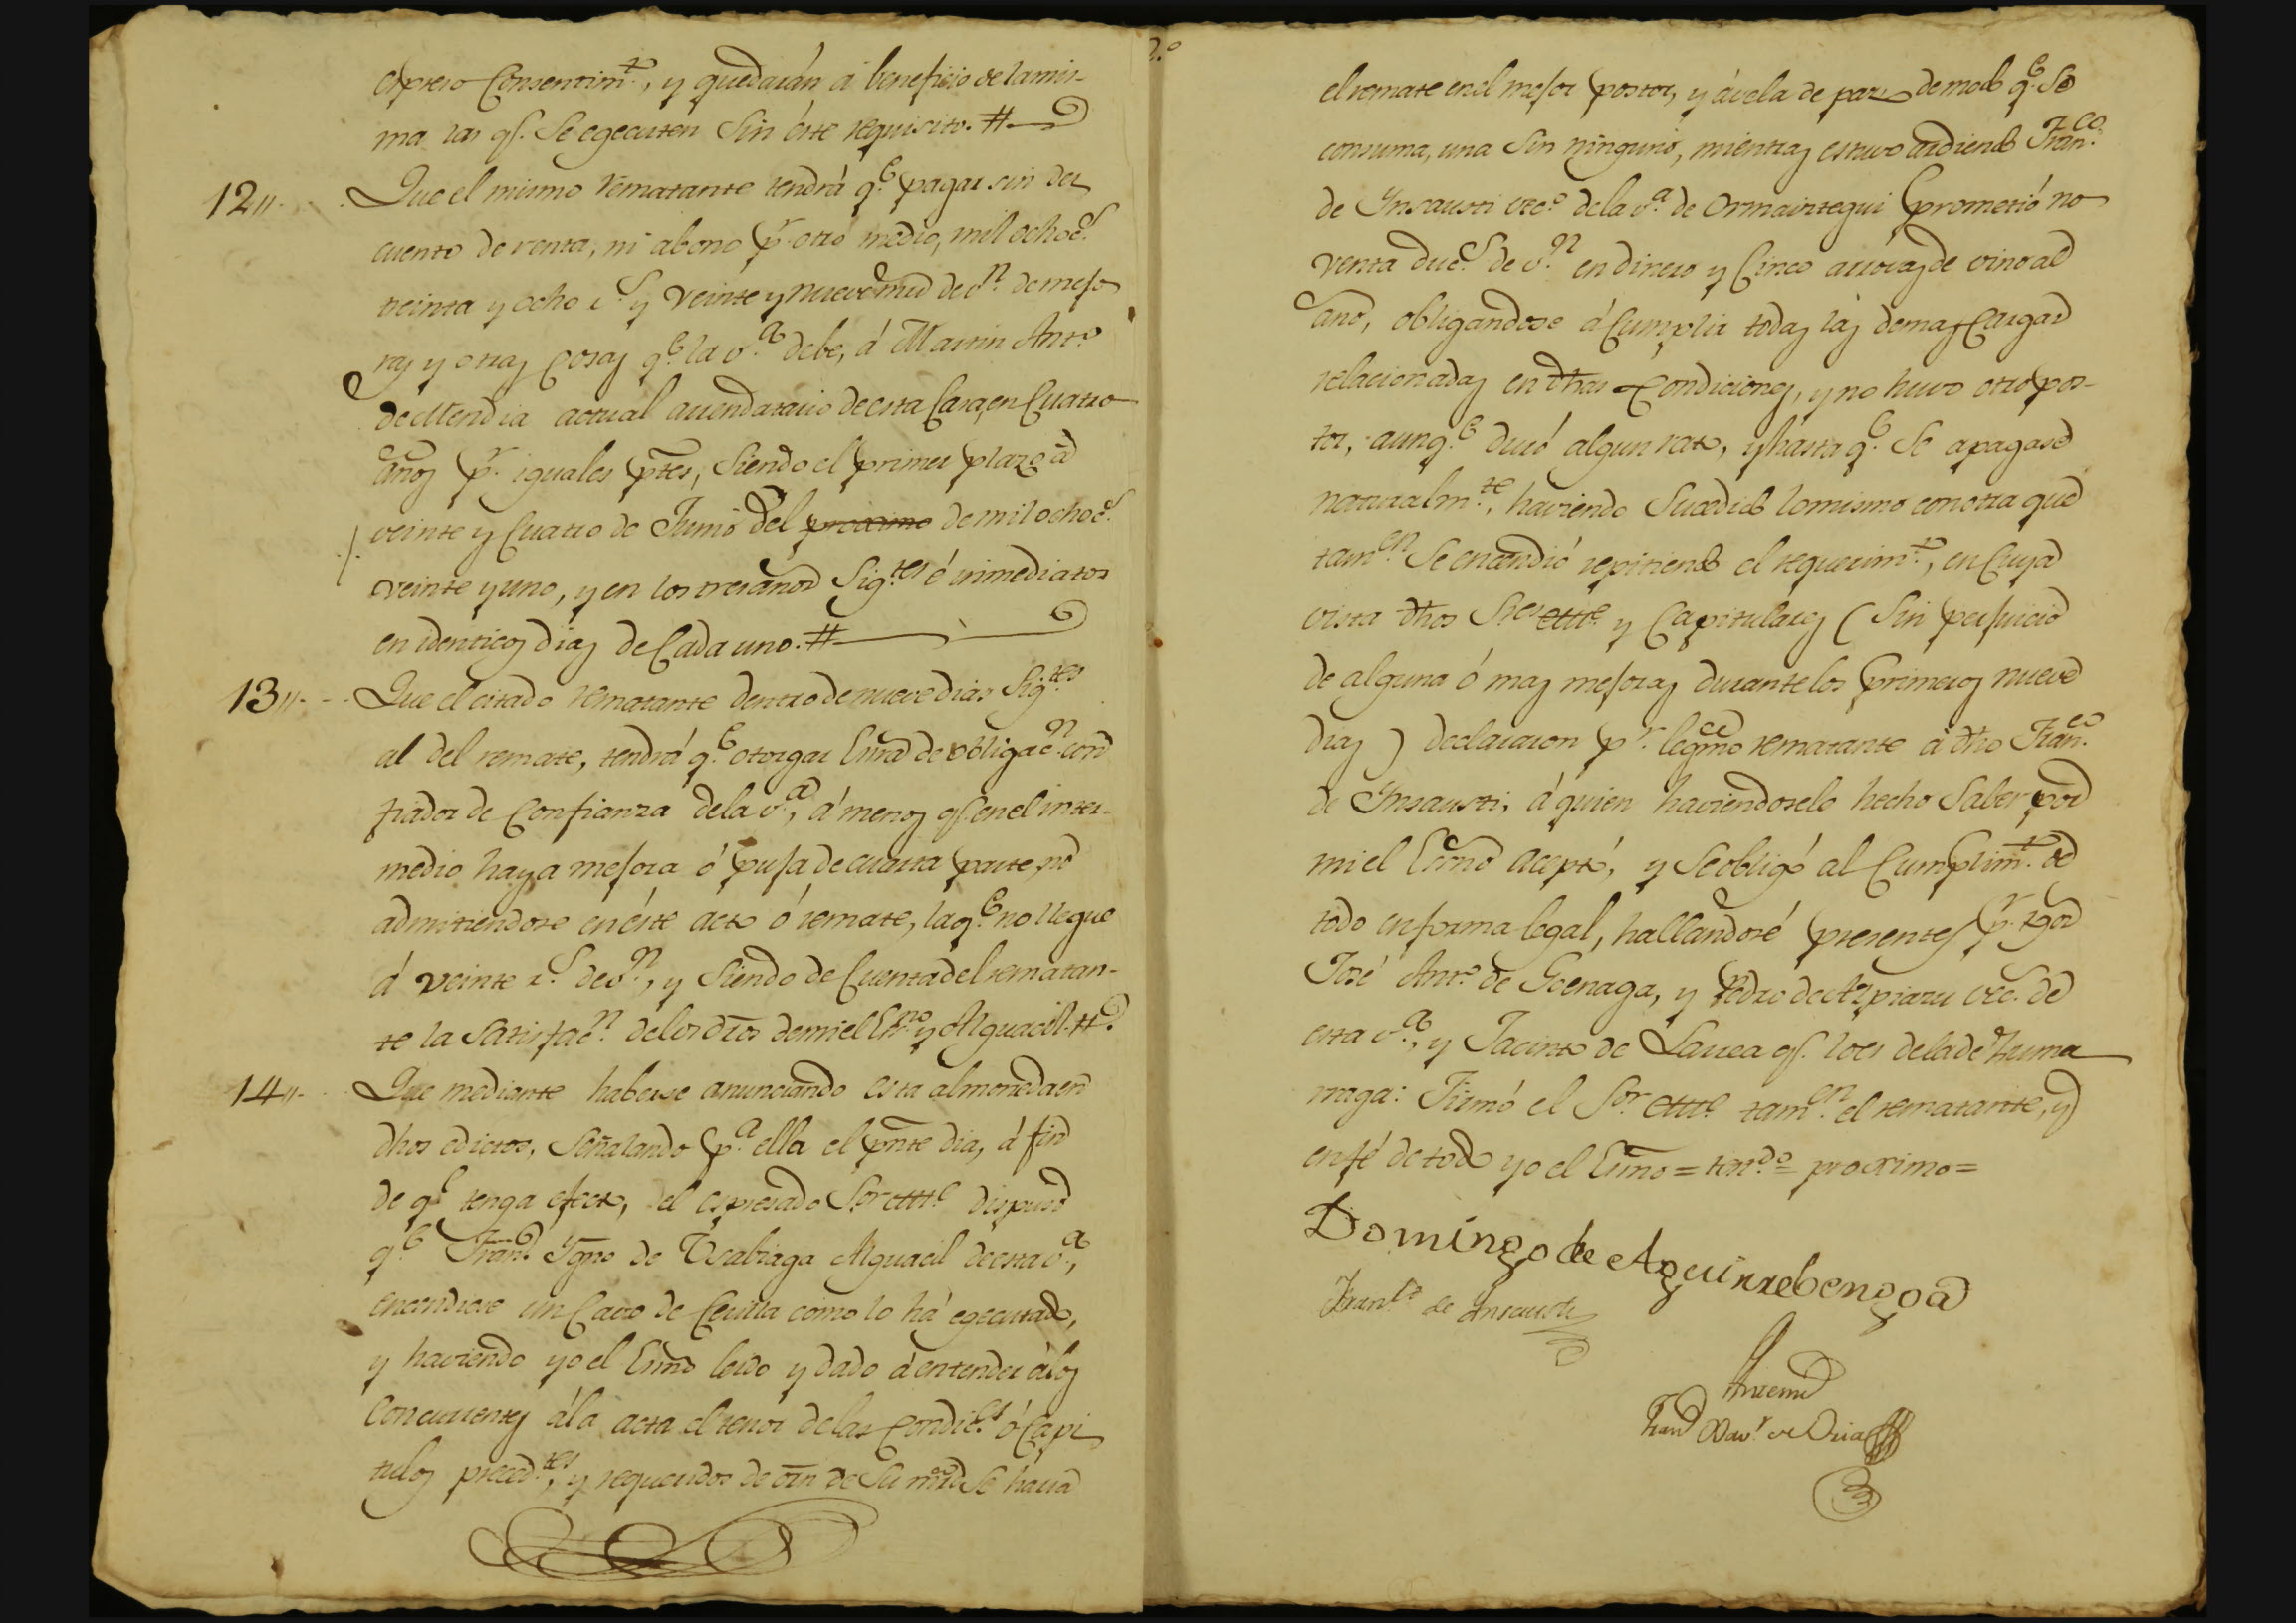 expreso Consentim.to, y quedarán á beneficio de la mis-
ma las q.e Se egecuten Sin éste requisito. #
12,, Que el mismo Rematante tendrá q.e pagar sin des
cuento de renta, ni abono p.r otro medio, mil ochoc.s
treinta y ocho r.s y veinte y nueve mrd de v.n de mejo
ras y otras cosas q.e la v.a debe, á Martin Ant.o
de Mendia actual arrendatario de esta Casa, en Cuatro
años p.r iguales ptes, Siendo el primer plazo á
veinte y Cuatro de Junio del proximo de mil ochoc.s
veinte y uno, y en los tres años Sig.tes é inmediatos
en identicos dias de Cada uno. #
13,, Que el citado rematante dentro de nueve dias Sig.tes
al del remate, tendrá q.e otorgar Escrã de obligac.n con
fiador de Confianza de la v.a, á menos q.e en el inter-
medio haya mejora ó puja de cuarta parte, no
admitiendose en éste acto ó remate, la q.e no llegue
á veinte r.s de v.n, y Siendo de Cuenta del rematan-
te la Satisfac.n de los dros de mi el Es.no y Alguacil. #
14,, Que mediante haberse anunciando esta almoneda en
dhos edictos, Señalando p.a ella el pnte dia, á fin
de q.e tenga efecto, el espresado S.or Alc.e dispuso
q.e Fran.co Ygno de Ysabiaga Alguacil de esta v.a,
encendiese un Cavo de Cerilla como lo há egecutado,
y haviendo yo el Esno leido y dado á entender á los
Concurrentes á la acta el tenor de las Condic.es ó Capi
tulos preced.tes, y requeridos de orn de Su mrd Se haria
2.o
el remate en el mejor postor, y á vela de par demodo q.e Se
consuma, una Sin ninguno, mientras estuvo ardiendo Fran.co
de Insausti vec.o de la v.a de Ormaiztegui prometió no
venta duc.s de v.n en dinero y Cinco arrovas de vino al
año, obligandose á Cumplir todas las demas Cargas
relacionadas en dhas Condiciones, y no huvo otro pos-
tor, aunq.e duró algun rato, y hasta q.e Se apagase
naturalm.te, haviendo Sucedido lo mismo con otra que
tam.en Se encendió repitiendo el requerim.to, en Cuya
vista dhos S.res Alc.e y Capitulares (Sin perjuicio
de alguna ó mas mejoras durante los primeros nueve
dias) declararon p.r legmo rematante á dho Fran.co
de Insausti, á quien haviendoselo hecho Saber por
mi el Esno aceptó, y Se obligó al Cumplim.to de
todo en forma legal, hallandose presentes p.r tgos
José Ant.o de Goenaga, y Pedro de Azpiazu vec.s de
esta v.a, y Jacinto de Larrea q.e lo es de la de Zuma
rraga: Firmó el S.or Alc.e tam.en el rematante, y
en fé de todo yo el Esno = tes.do = proximo =
Domingo de Aguirrebengoa
Fran.co de Insausti
Antemi
Fran.co Xav.r de Uria